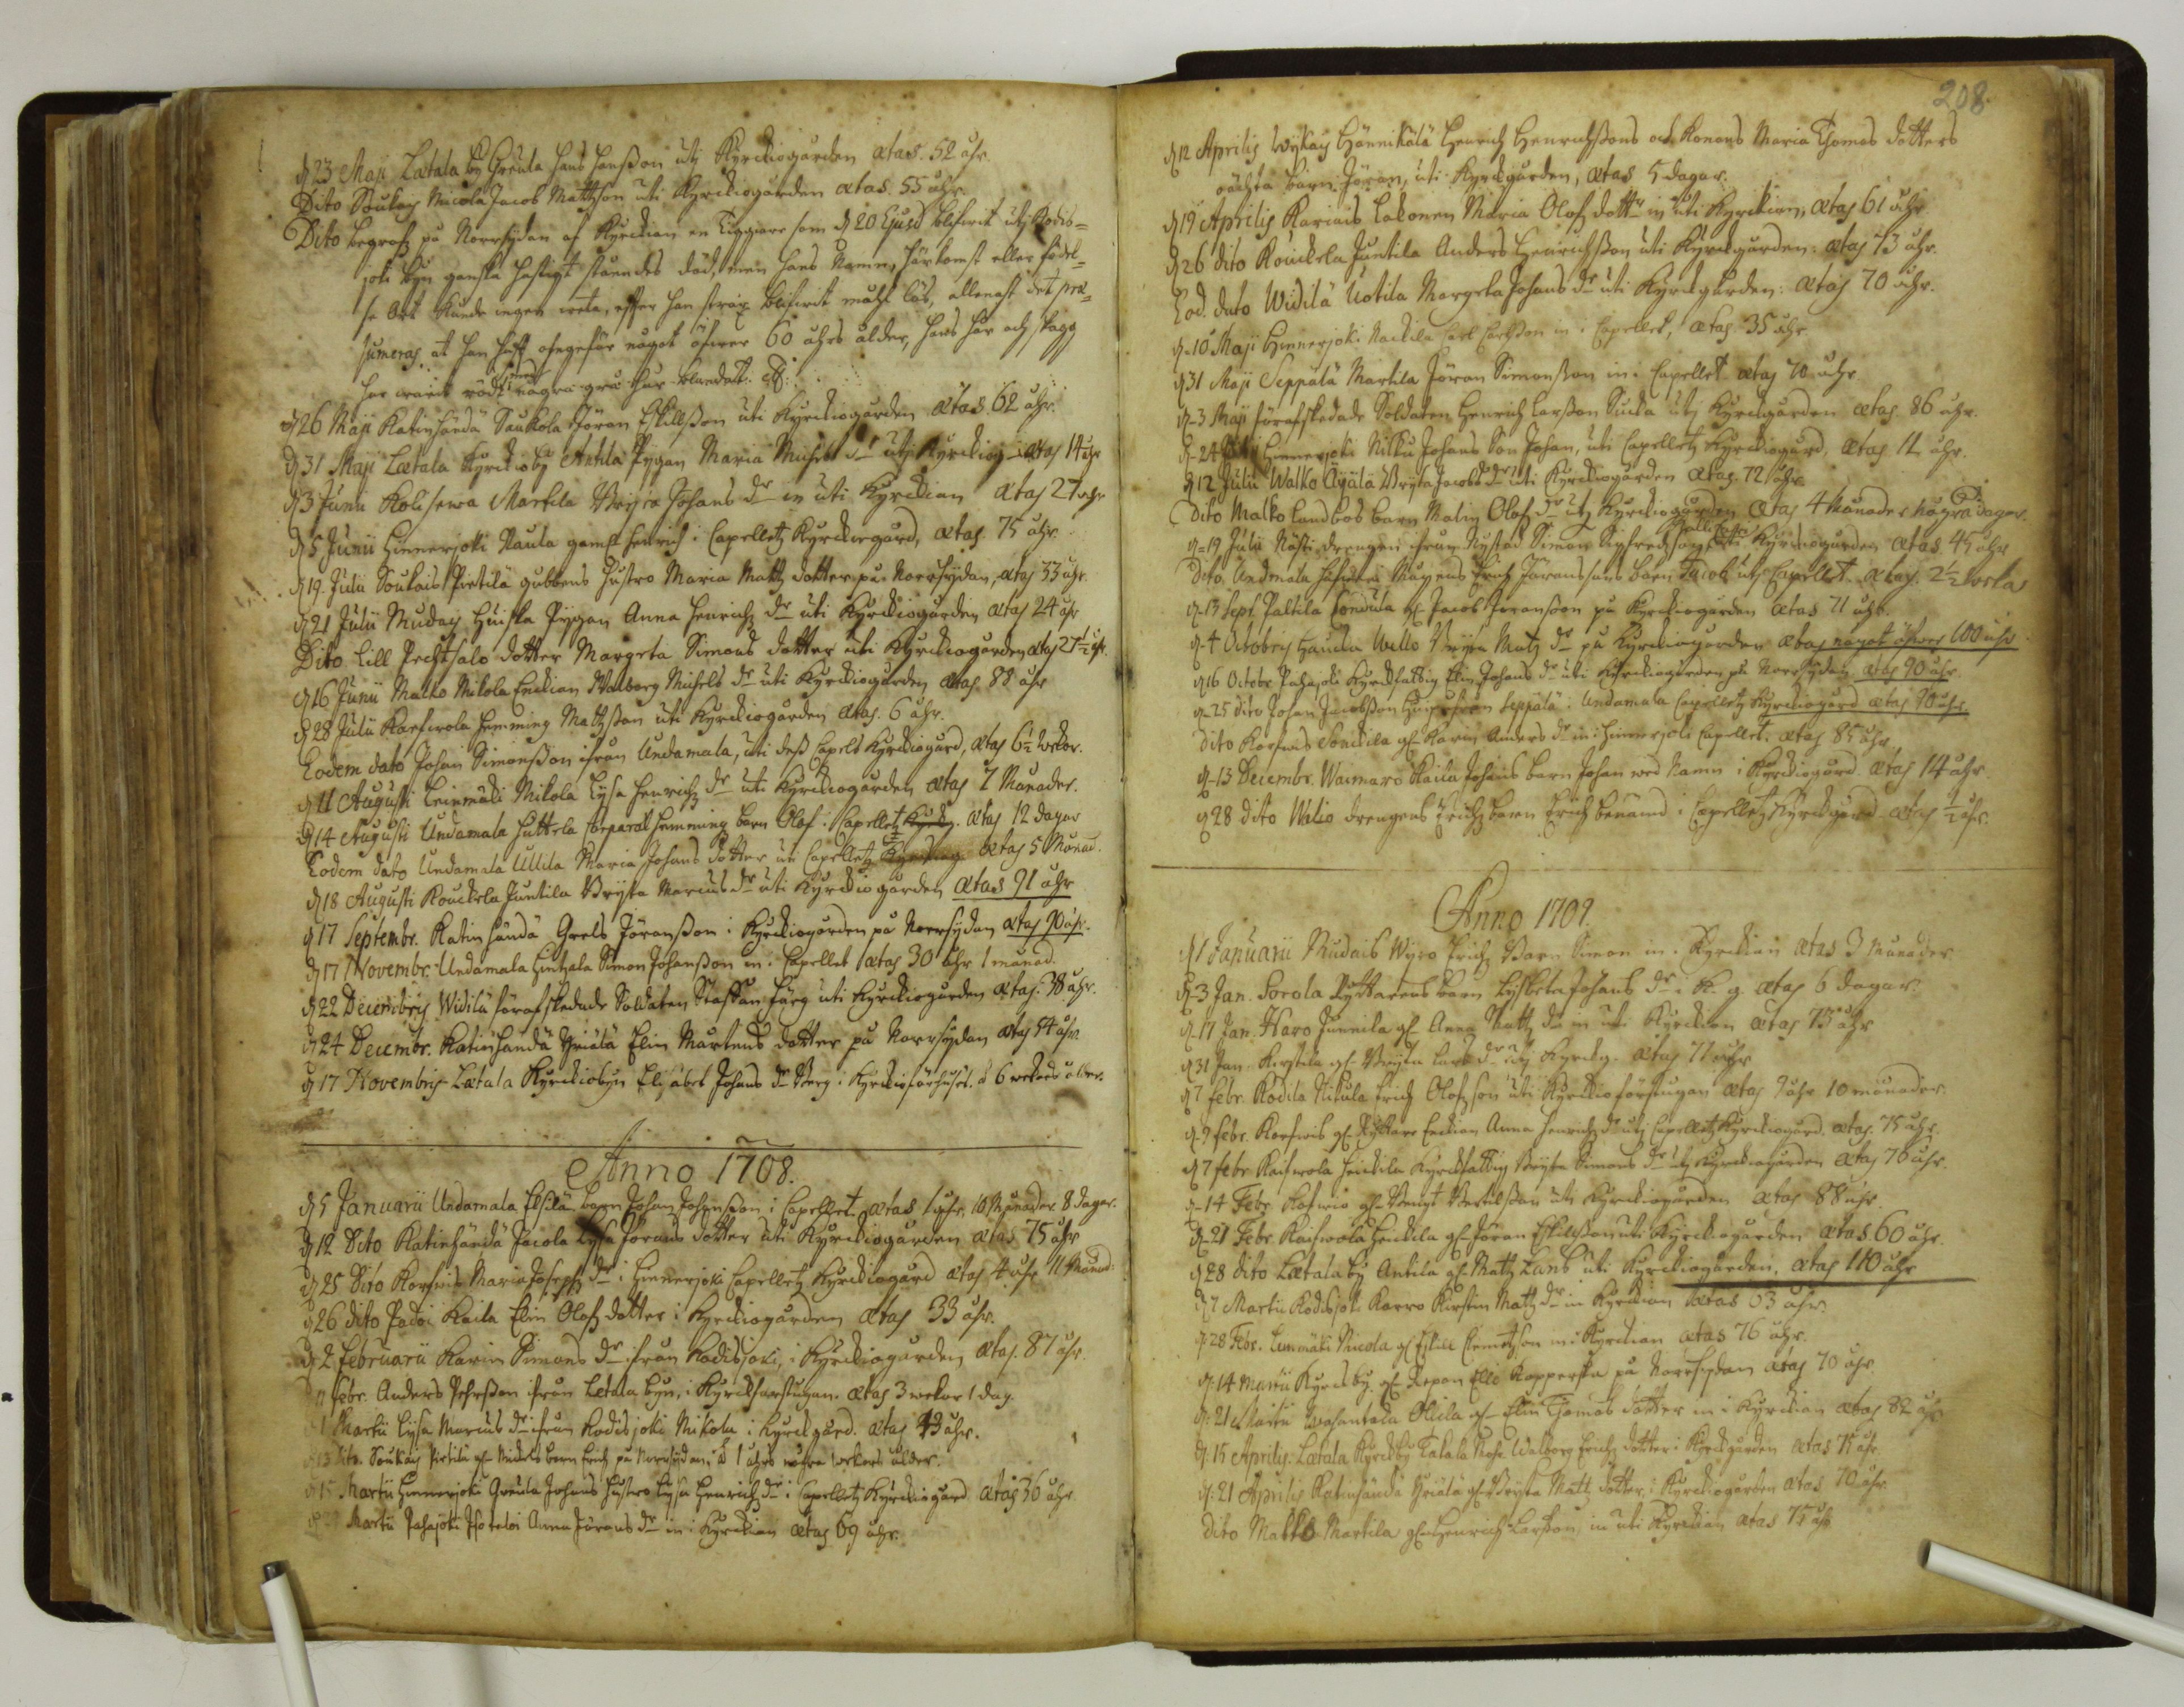 d 23 Maji Lætala by Greula Hans Hansson utj Kyrckiogården ætas. 52 åhr.
Dito Soukais Nicola Jacob Mattson uti Kyrckiogården ætas. 55 åhr.
Dito begrofs på Norrsydan af Kyrckian en Tiggare som d 20 Ejusd blifwit utj Kodis-
joki byn ganska hastigt siuundes död, men hans Namn, härkomst eller födel-
se Ort kunde ingen weta, efter han strax blifwit måhl lös, allenast det præ-
sumeras at han haft ofngefär något öfwer 60 åhrs ålder, hans hår och skägg
har warit rödt med några grå hår blandat.
d 26 Maji Katinhändä Saukola Jöran Eskillsson uti Kyrckiogården ætas 62 åhr.
d 31 Maji Lætala Kyrckioby Antila Pygan Maria Michels dr utj Kyrckiog. ætas 14 åhr
d 3 Junii Kolisewa Martila Bryta Johans dr in uti Kyrckian ætas 27 åhr
d 5 Junii Hinnerjoki Kaula gamle Henrich i Capellets Kyrckiogård, ætas 75 åhr.
d 19. Julii Soukais Pertilä gubbens Hustro Maria Matts dotter på Norrsydan, ætas 33 åhr.
d 21 Julii Mudais Huiska Pygan Anna Henrichs dr uti Kyrckiogården ætas 24 åhr
Dito Lill Pechtsalo dotter Margeta Simons dotter uti Kyrckiogården ætas 27 1/2 åhr.
d 16 Junii Malko Mikola Enckian Walborg Michels dr uti Kyrckiogården ætas 88 åhr
d 28 Julii Kaefwola Hemming Mattsson uti Kyrckiogården ætas. 6 åhr.
Eodem dato Johan Simonsson ifrån Undamala, uti dess Capels Kyrckiogård, ætas 6 1/2 wekor.
d 11 Augusti Leinmäki Mikola Lysa Henrichs dr uti Kyrckiogården ætas 7 Månader.
d 14 Augusti Undamala Huttela Corporal Hemming barn Olof i Capellet. ætas 12 dagar
Eodem dato Undamala Ullila Maria Johans dotter in Capellet ætas 5 Månad.
d 18 Augusti Kouckela Juntila Bryta Marcus dr uti Kyrckiogården ætas 91 åhr
d 17 Septembr. Katinhändä Grels Jöransson i Kyrckiogården på Norrsydan ætas 90 åhr.
d 17 Novembr. Undamala Hintzala Simon Johansson in i Capellet ætas 30 åhr 1 månad.
d 22 Decembris Widilä för afskedade Soldaten Staffan Färg uti Kyrckiogården ætas. 78 åhr.
d 24 Decembr. Katinhändä Yriälä Elin Martens dotter på Norrsydan ætas 54 åhr.
d 17 Novembris Lætala Kyrckiobyn Elisabet Johans dr Berg i Kyrckioförhuset. á 6 wekors ålder.
Anno 1708.
d 5 Januarii Undamala Eskilä barn Johan Johansson i Capellet ætas 1 åhr, 10 Månader 8 dagar.
d 12 Dito Katinhändä Jacola Lysa Jörans dotter uti Kyrckiogården ætas 75 åhr
d 25 Dito Korfwis Maria Josephs dr i Hinnerjoki Capellets Kyrckiogård ætas 4 åhr 11 Månad:
d 26 dito Padoi Kaila Elin Olofs dotter i Kyrckiogården ætas 33 åhr.
d 2 Februarii Karin Simons dr ifrån Kodisjoki, i Kyrckiogården ætas. 87 åhr.
febr. Anders Pehrsson ifrån Letala byn, i Kyrckforstugan. ætas 3 wekor 1 dag.
Martii Lysa Marcus dr ifrån Kodisjoki Mikola i Kyrckgård. ætas 43 åhr.
d 13 dito. Soukais Pertilä gl. Michels barn Erich på Norrsydan, á 1 åhrs några wekors ålder.
d 15 Martii Hinnerjoki Greula Johans Hustro Lysa Henrichs dr i Capellets Kyrckiogård ætas 36 åhr.
Martii Pahajoki Isotaloi Anna Jörans dr in i Kyrckian ætas 69 åhr.
208
d 12 Aprilis Wykais Hännikälä Henrich Henrichssons och Konans Maria Thomas dotters
oächta barn Jöran, uti Kyrckgården, ætas 5 dagar.
d 19 Aprilis Kariais Lakonen Maria Olofs dotter in uti Kyrckian, ætas 61 åhr
d 26 dito Kouckela Juntila Anders Henrichsson uti Kyrckgården: ætas 73 åhr.
Eod. dato Widilä Uotila Margeta Johans dr uti Kyrckgården: ætas 70 åhr.
d. 10 Maji Hinnerjoki Nackila Carl Carlsson in i Capellet, ætas. 35 åhr.
d 31 Maji Seppälä Martila Jöran Simonsson in i Capellet ætas 70 åhr
d. 3 Maji förafskedade Soldaten Henrich Larsson Suika utj Kyrckgården ætas. 86 åhr.
d. 24 Hinnerjoki Nikku Johans Son Johan, uti Capellets Kyrckiogård, ætas 12 åhr.
d 12 Julii Walko Äyälä Bryta Jacobs dr uti Kyrckiogården ætas. 72 åhr.
Dito Malko Landbos barn Malin Olofs dr utj Kyrckiogården ætas 4 Månader några dagar.
d. 19 Julii Nästi drengen ifrån Nystad Simon Sigfredsson uti Kyrckiogården ætas. 45 åhr
Dito. Undmala Erich Jöranssons barn Jacob utj Capellet. ætas. 2 1/2 wecka
d. 13 Sept. Paltila gl. Jacob Jöransson på Kyrckiogården ætas 71 åhr.
d. 4 Octobris Haucka Uello Bryta Matts dr på Kyrckiogården ætas något öfwer 100 åhr
d 16 Octobr. Pahajoki Kyrckfattig Elin Johans dr uti Kyrckiogården på Norrsydan ætas 90 åhr.
d. 25 dito Johan Jacobsson Seppälä i Undamala Capellets Kyrckiogård ætas 70 åhr.
Dito Korfwis Sonckila gl. Karin Anders dr in i Hinnerjoki Capellet. ætas 85 åhr
d. 13 Decembr. Waimaro Kaila Johans barn Johan wed Namn i Kyrckiogård. ætas 14 åhr
d 28 dito Wälio drengens Erichs barn Erich benämd i Capellets Kyrckgård ætas 1/2 åhr.
Anno 1709.
d 1 Januarii Mudais Wyro Erichs Barn Simon in i Kyrckian ætas 3 Månader
d. 3 Jan. Sorola Ryttarens barn Lysbeta Johans dr i K. g. ætas 6 dagar.
d. 17 Jan. Haro Junnila gl. Anna Matts dr in uti Kyrckian ætas 73 åhr
d 31 Jan. Kirstila gl. Bryta Lars dr utj Kyrckg. ætas 71 åhr
d 7 Febr. Kodila Nikula Erich Olofsson uti Kyrckioförstugan ætas 7 åhr 10 månader.
d. 9 febr. Korfwis gl. Ryttare Enckian Anna Henrichs dr utj Capellets Kyrckiogård, ætas. 75 åhr.
d 7 febr Kaifwola Heickila Kyrckfattig Bryta Simons dr utj Kyrckiogården ætas 76 åhr.
d. 14 Febr Kafwio gl. Bengt Bertelsson uti Kyrckiogården ætas 88 åhr.
d. 21 Febr. Kaifwola Heickila gl. Jöran Eskelsson uti Kyrckiogården ætas. 60 åhr.
d 28 dito Lætala by Antila gl. Matts Lans uti Kyrckiogården. ætas 110 åhr
d 7 Martii Kodisjoki Karro Kirstin Matts dr in Kyrckian ætas 63 åhr.
d. 28 Febr. Leinmäki Nicola gl. Eskill Clemetsson in i Kyrckian ætas 76 åhr.
d. 14 Martii Kyrckby gl. Repon Elli Kopperska på Norrsydan ætas 70 åhr
d. 21 Martii Ihasantala Ollila gl. Elin Thomas dotter in i Kyrckian ætas 82 åhr
d. 15 Aprilis. Lætala Kyrckby Takala Walborg Erichs dotter i Kyrckgården ætas 75 åhr
d: 21 Aprilis Katinhändä Yriälä gl. Bryta Matts dotter, i Kyrckiogården ætas 70 åhr
Dito Malko Martila gl. Henrich Larsson in uti Kyrckian ætas 75 åhr